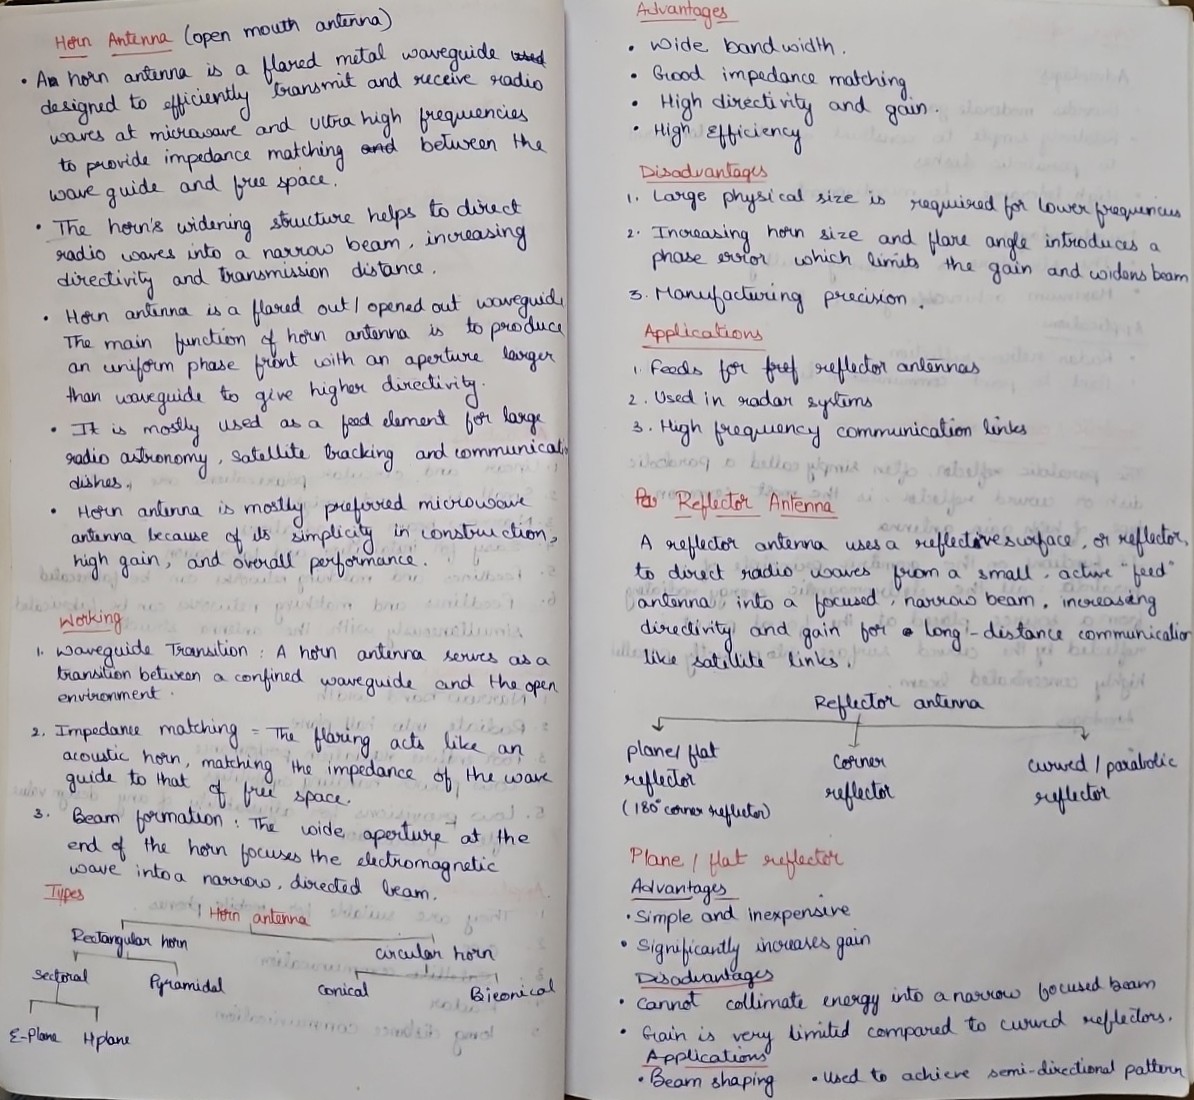 Horn Antenna (open mouth antenna)
• A horn antenna is a flared metal waveguide
designed to efficiently transmit and receive radio
waves at microwave and ultra high frequencies
to provide impedance matching and between the
wave guide and free space.
• The horn's widening structure helps to direct
radio waves into a narrow beam, increasing
directivity and transmission distance.
• Horn antenna is a flared out / opened out waveguide
The main function of horn antenna is to produce
an uniform phase front with an aperture larger
than waveguide to give higher directivity.
• It is mostly used as a feed element for large
radio astronomy, satellite tracking and communicati
dishes.
• Horn antenna is mostly preferred microwave
antenna because of its simplicity in construction,
high gain, and overall performance.
Working
1. Waveguide Transition : A horn antenna serves as a
transition between a confined waveguide and the open
environment.
2. Impedance matching = The flaring acts like an
acoustic horn, matching the impedance of the wave
guide to that of free space.
3. Beam formation : The wide aperture at the
end of the horn focuses the electromagnetic
wave into a narrow, directed beam.
Types
Horn antenna
Rectangular horn circular horn
Sectoral Pyramidal conical Biconical
E-Plane H plane
Advantages
• Wide bandwidth.
• Good impedance matching
• High directivity and gain.
• High Efficiency
Disadvantages
1. Large physical size is required for lower frequencies
2. Increasing horn size and flare angle introduces a
phase error which limits the gain and widens beam
3. Manufacturing precision.
Applications
1. Feeds for reflector antennas
2. Used in radar systems
3. High frequency communication links
Reflector Antenna
A reflector antenna uses a reflective surface, or reflector,
to direct radio waves from a small, active "feed"
antenna, into a focused, narrow beam, increasing
directivity and gain for long-distance communication
like satellite links.
Reflector antenna
plane/ flat reflector (180° corner reflector)
corner reflector
curved / parabolic reflector
Plane / flat reflector
Advantages
• Simple and inexpensive
• Significantly increases gain
Disadvantages
• Cannot collimate energy into a narrow focused beam
• Gain is very limited compared to curved reflectors.
Applications
• Beam shaping • Used to achieve semi-directional pattern